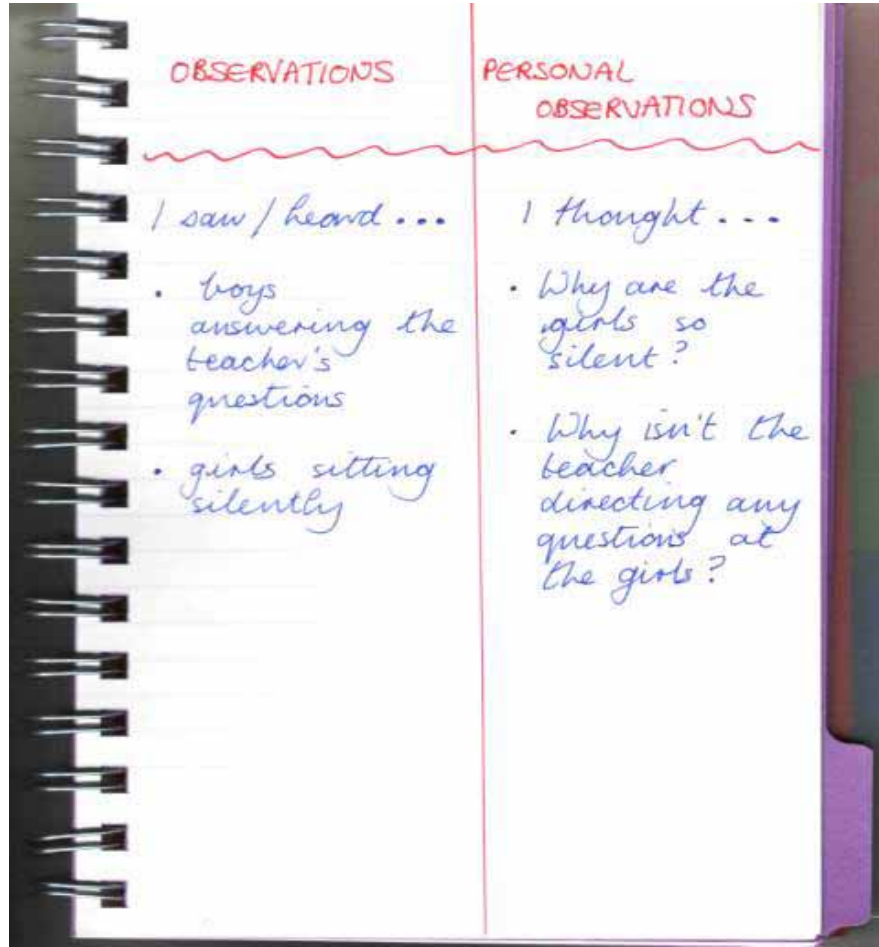 OBSERVATIONS
I saw / heard ...
• boys
answering the
teacher's
questions
• girls sitting
silently
PERSONAL
OBSERVATIONS
I thought ...
• Why are the
girls so
silent?
• Why isn't the
teacher
directing any
questions at
the girls?